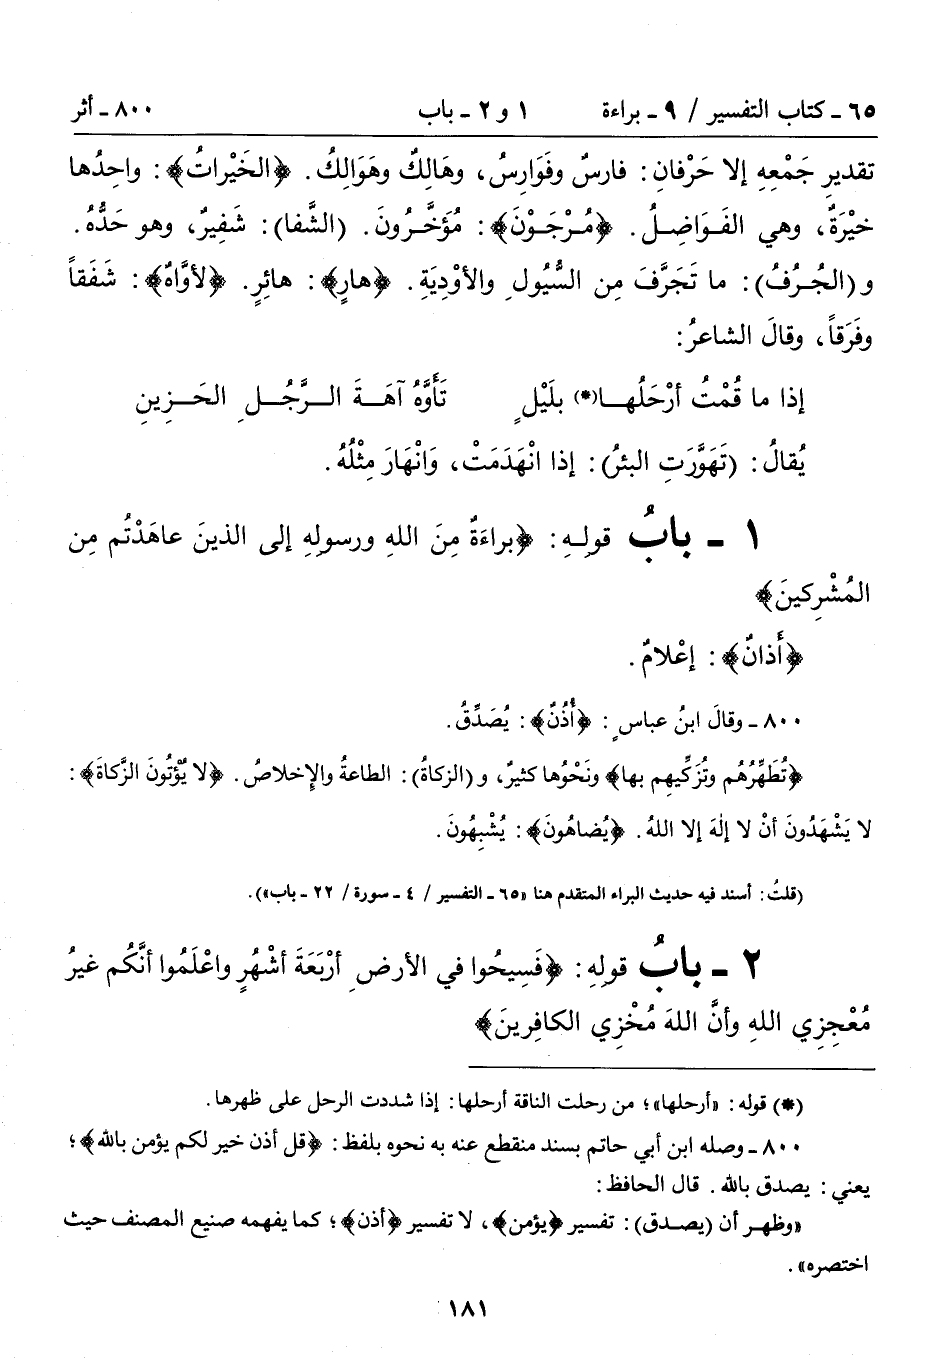 ٦٥ ـ كتاب التفسير / ٩ ـ براءة ١ و ٢ ـ باب ٨٠٠ ـ أثر
تقديرِ جَمْعِهِ إلا حَرْفانِ: فارسٌ وفَوَارِسُ، وهَالِكٌ وهَوَالِكُ. ﴿الخَيْراتُ﴾: واحِدُها
خيْرَةٌ، وهي الفَوَاضِلُ. ﴿مُرْجَوْنَ﴾: مُؤَخَّرُونَ. (الشَّفا): شَفِيرٌ، وهو حَدُّهُ.
و(الجُرُفُ): ما تَجَرَّفَ مِن السُّيُولِ والأوْدِيَةِ. ﴿هارٍ﴾: هائِرٍ. ﴿لأوَّاهٌ﴾: شَفَقاً
وفَرَقاً، وقالَ الشاعرُ:
إذا ما قُمْتُ أرْحَلُهـا(*) بلَيْلٍ تَأوَّهُ آهَةَ الرَّجُلِ الحَزِينِ
يُقالُ: (تَهَوَّرَتِ البئرُ): إذا انْهَدَمَتْ، وَانْهَارَ مِثْلُهُ.
١ ـ بابُ قولِهِ: ﴿براءَةٌ مِنَ اللهِ ورسولِهِ إلى الذينَ عاهَدْتُم مِن
المُشْرِكينَ﴾
﴿أَذانٌ﴾: إعْلامٌ.
٨٠٠ ـ وقالَ ابنُ عباسٍ: ﴿أُذُنٌ﴾: يُصَدِّقُ.
﴿تُطَهِّرُهُم وتُزَكِّيهِم بها﴾ ونَحْوُها كثيرٌ، و(الزكاةُ): الطاعةُ والإِخلاصُ. ﴿لا يُؤْتُونَ الزَّكاةَ﴾:
لا يَشْهَدُونَ أنْ لا إلهَ إلا اللهُ. ﴿يُضاهُونَ﴾: يُشْبِهُونَ.
(قلتُ: أسند فيه حديث البراء المتقدم هنا «٦٥ ـ التفسير / ٤ ـ سورة / ٢٢ ـ باب»).
٢ ـ بابُ قولِهِ: ﴿فَسِيحُوا في الأرضِ أرْبَعَةَ أشْهُرٍ واعْلَمُوا أنَّكُم غيرُ
مُعْجِزِي اللهِ وأنَّ اللهَ مُخْزِي الكافِرينَ﴾
(*) قوله: «أرحلها»؛ من رحلت الناقة أرحلها: إذا شددت الرحل على ظهرها.
٨٠٠ ـ وصله ابن أبي حاتم بسند منقطع عنه به نحوه بلفظ: ﴿قل أذن خير لكم يؤمن بالله﴾؛
يعني: يصدق بالله. قال الحافظ:
«وظهر أن (يصدق): تفسير ﴿يؤمن﴾، لا تفسير ﴿أذن﴾؛ كما يفهمه صنيع المصنف حيث
اختصره».
١٨١